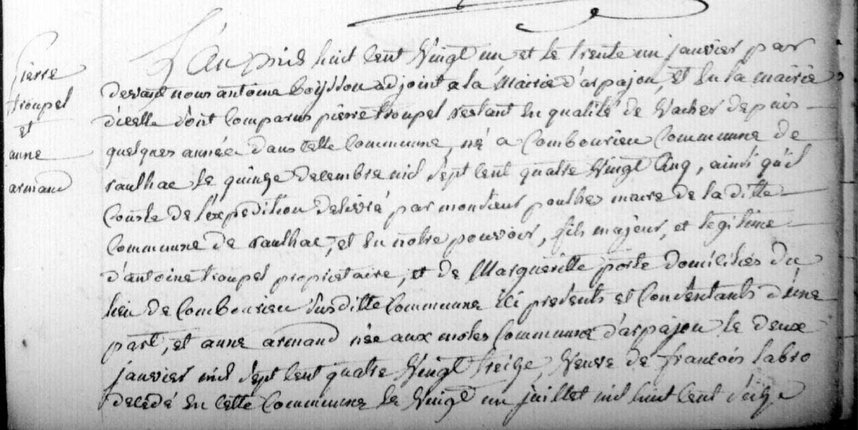 Pierre
troupel
et
anne
armand
L'an mil huit cent vingt un et le trente un janvier par
devant nous antoine boyssou adjoint a la mairie d'arpajon, et en la mairie
d'icelle sont comparus pierre troupel restant en qualité de vacher depuis
quelques année dans cette commune, né a Combourieu Commune de
raulhac le quinze decembre mil sept cent quatre vingt cinq, ainsi qu'il
Conste de l'expedition delivré par monsieur poulhes maire de la ditte
Commune de raulhac, et en notre pouvoir, fils majeur, et legitime
d'antoine troupel proprietaire, et de Margueritte porte domiciliés du
lieu de Combourieu susditte Commune ici presents et Consentants d'une
part, et anne armand née aux moles Commune d'arpajon le deux
janvier mil sept cent quatre vingt treize, veuve de francois labro
decedé en cette Commune le vingt un juillet mil huit cent seize